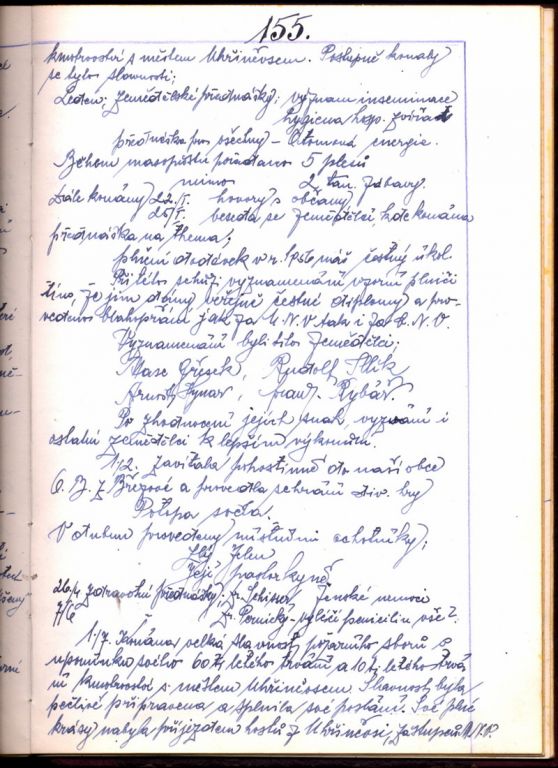 155.
kmotrovství s městem Uhříněvsem. Postupně konaly
se tyto slavnosti;
Leden; Zemědělské přednášky; význam inseminace
hygiena hosp. zvířat
přednáška pro všechny - Atomová energie.
Během masopustu pořádáno 5 plesů
mimo 2 tan. zábavy.
Dále konány 22./I. hovory s občany
25/I. beseda se zemědělci, kde konána
přednáška na thema;
plnění dodávek v r. 1956 máš čestný úkol.
Při této schůzi vyznamenáni vzorní plniči
tím, že jim dány veřejně čestné diplomy a pro-
vedeno blahopřání jak za M.N.V. tak i za O.N.V.
Vyznamenáni byli tito zemědělci;
Rudolf
Arnošt Rybář.
Po zhodnocení jejich snah vyzváni i
ostatní zemědělci k lepším výkonům.
1/2. zavítala pohostinně do naší obce
O. B. z Březové a provedla sehrání div. hry
Potopa světa.
V dubnu provedeny místními ochotníky;
Zlý Jelen
Její pastorkyně
26/4 zdravotní přednášky; Dr. Schisser ženské nemoci
7/6 " Dr. Pernický - vyléčí penicilin vše?
1./7. Konána velká slavnost požárního sboru s
vzpomínkou svého 60ti letého trvání a 10ti letého trvá-
ní kmotrovství s městem Uhříněvsem. Slavnost byla
pečlivě připravena a splnila své poslání. Své plné
krásy nabyla příjezdem hostů z Uhříněvsi, zástupců